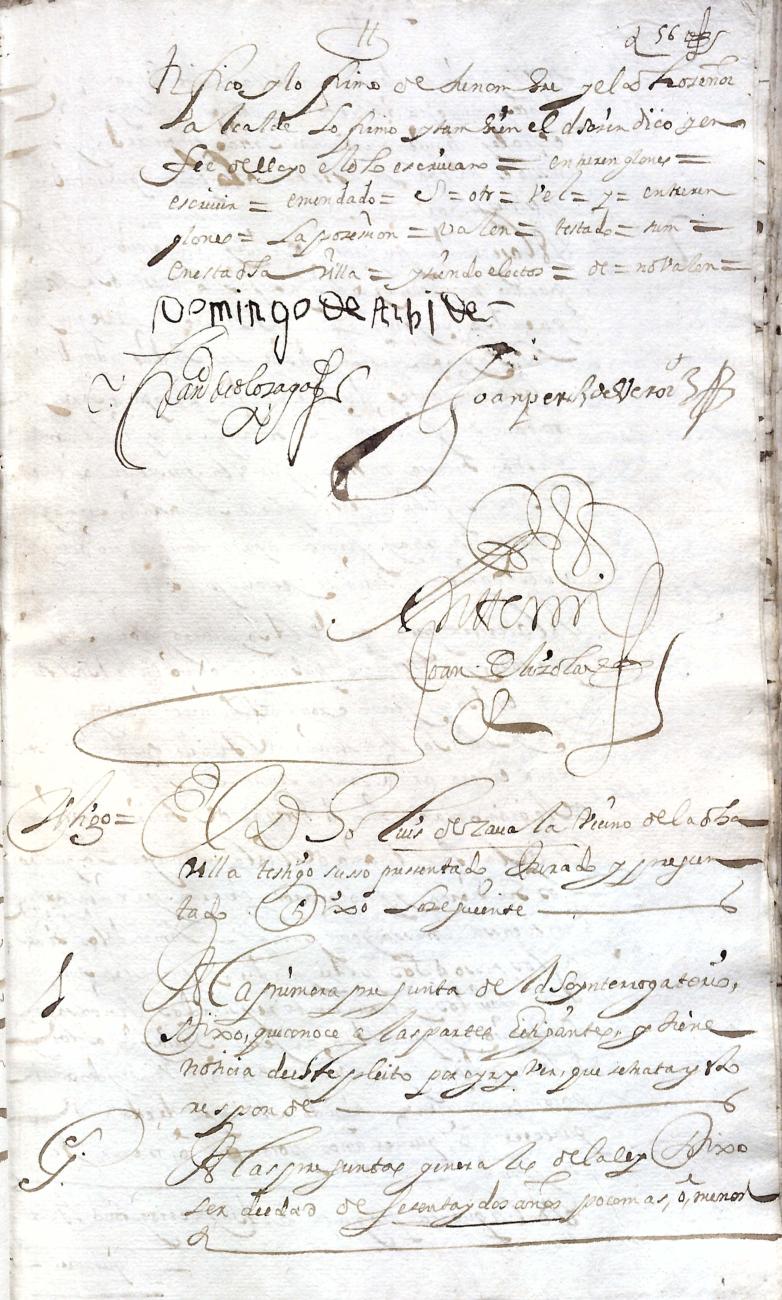 56
fico y lo firmo de su nombre y el dho señor
alcalde lo firmo y tambien el dho sindico y en
fee de ello yo el dho escrivano = entrerenglones =
escrivir = emendado = otr = el = y = entreren
glones = la posesion = valen = testado = sum =
en esta dha villa = y siendo electos = de = no valen =
Domingo de Arbide
Joan perez de
Ante mi
Joan
Testigo = El dho Luis de Zavala vecino de la dha
villa testigo susso presentado Jurado y pregun
tado Dixo lo seguiente
1 A la primera pregunta del dho ynterrogatorio,
Dixo, que conoce a las partes litigantes, y tiene
noticia de este pleito por oyr y ver, que se trata y esto
responde
G. A las preguntas generales de la ley Dixo
ser de edad de sesenta y dos años poco mas, o, menos